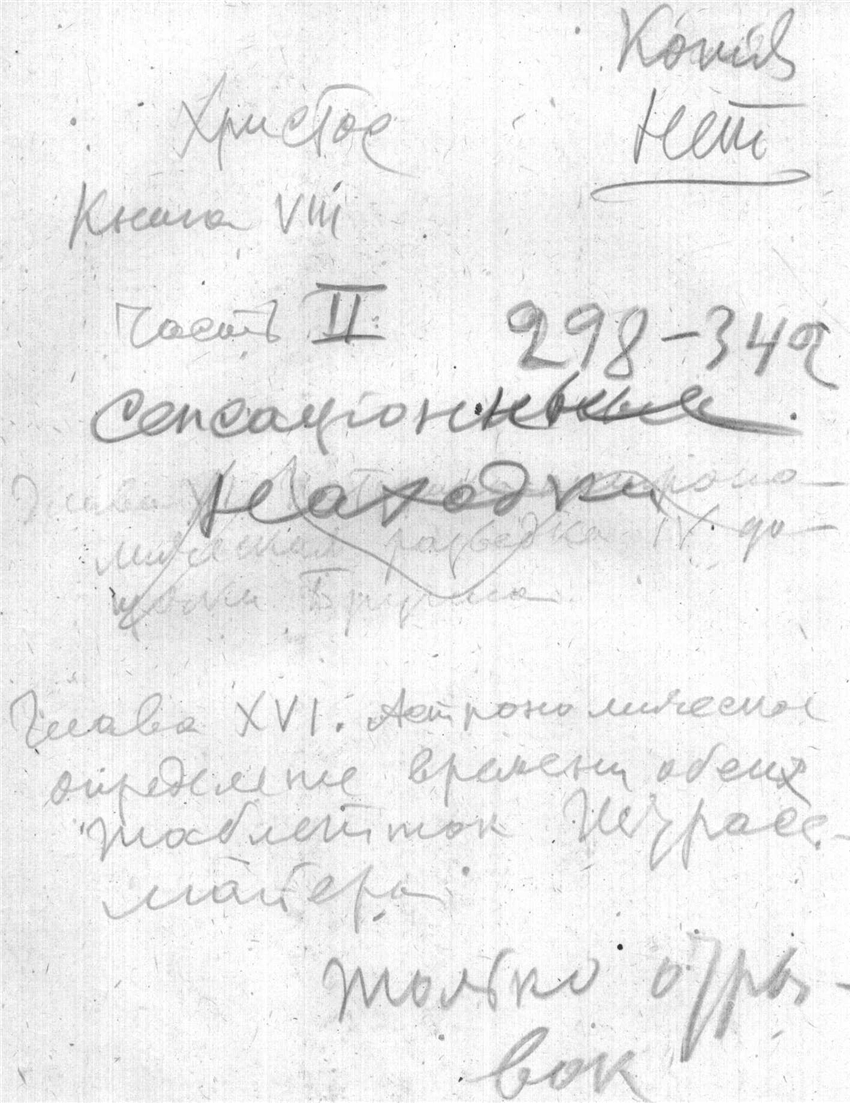 Копий
Нет
Христос
Книга VIII
Часть II
298-342
Сенсаціонные
находки
Глава
мическая разведка IV до-
щечки Бругша
Глава XVI. Астрономическое
определение времени обеих
таблетток Штрасс-
майера
только отры-
вок